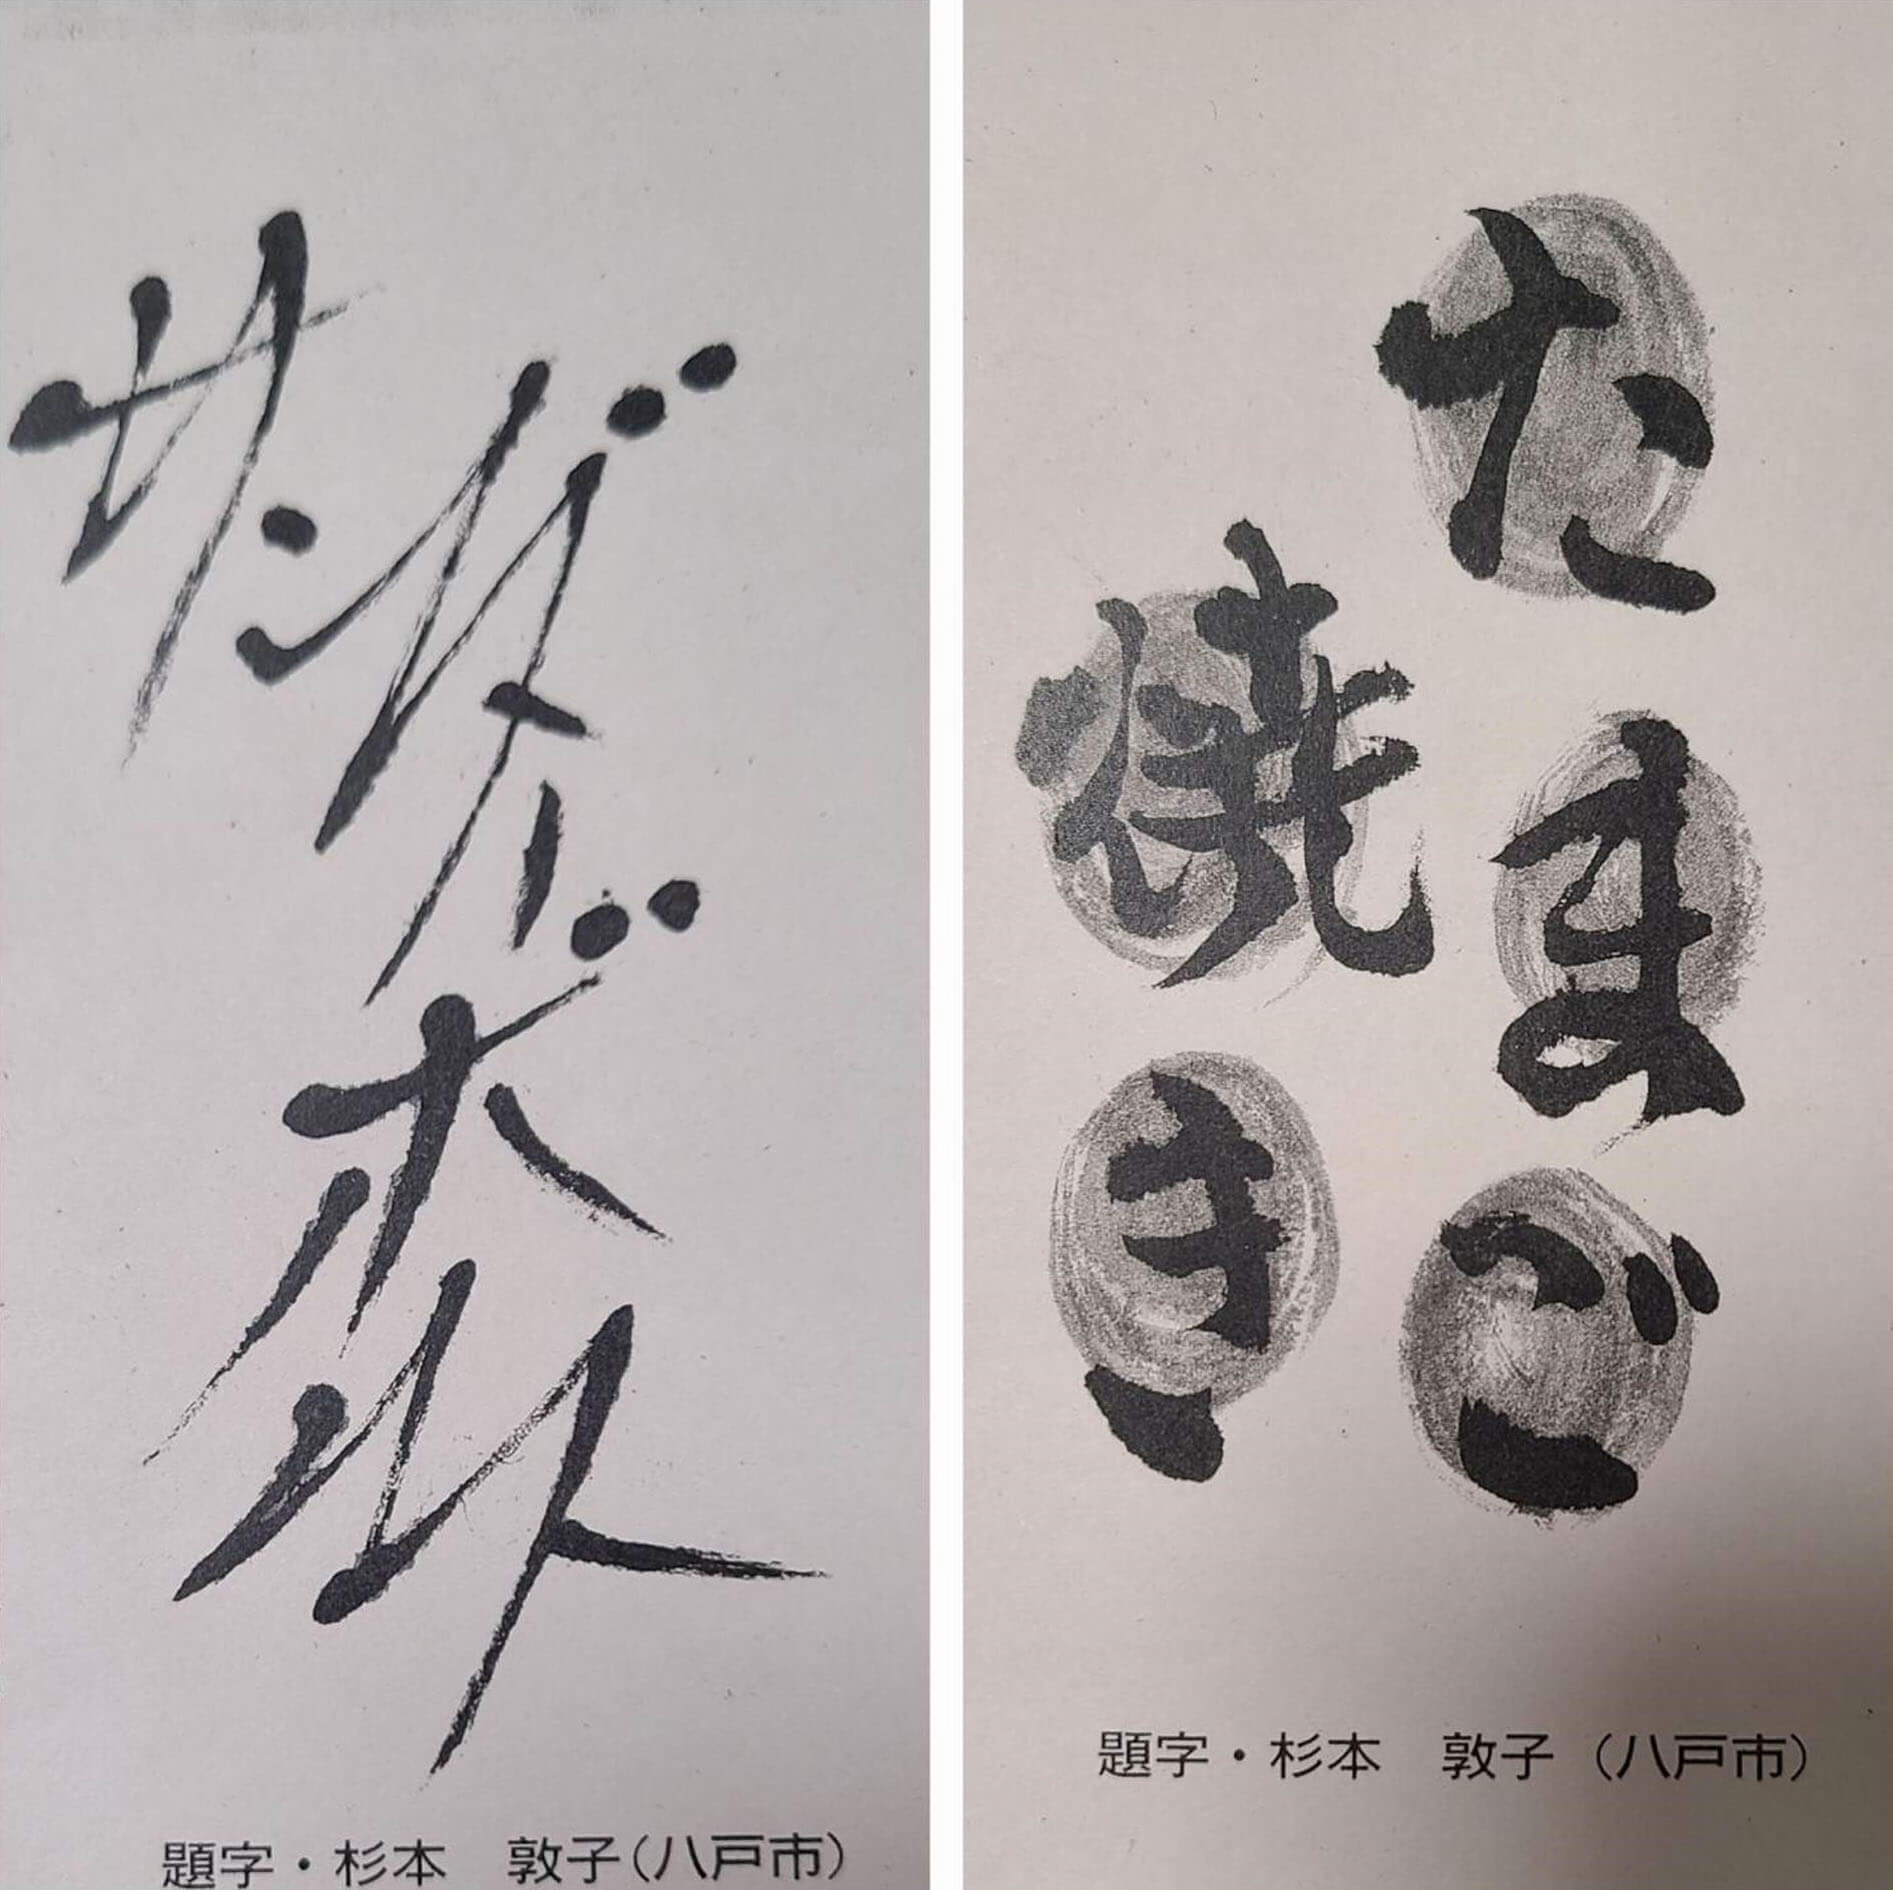 サンダーボルト
題字・杉本　敦子(八戸市)
たまご
焼き
題字・杉本　敦子（八戸市）